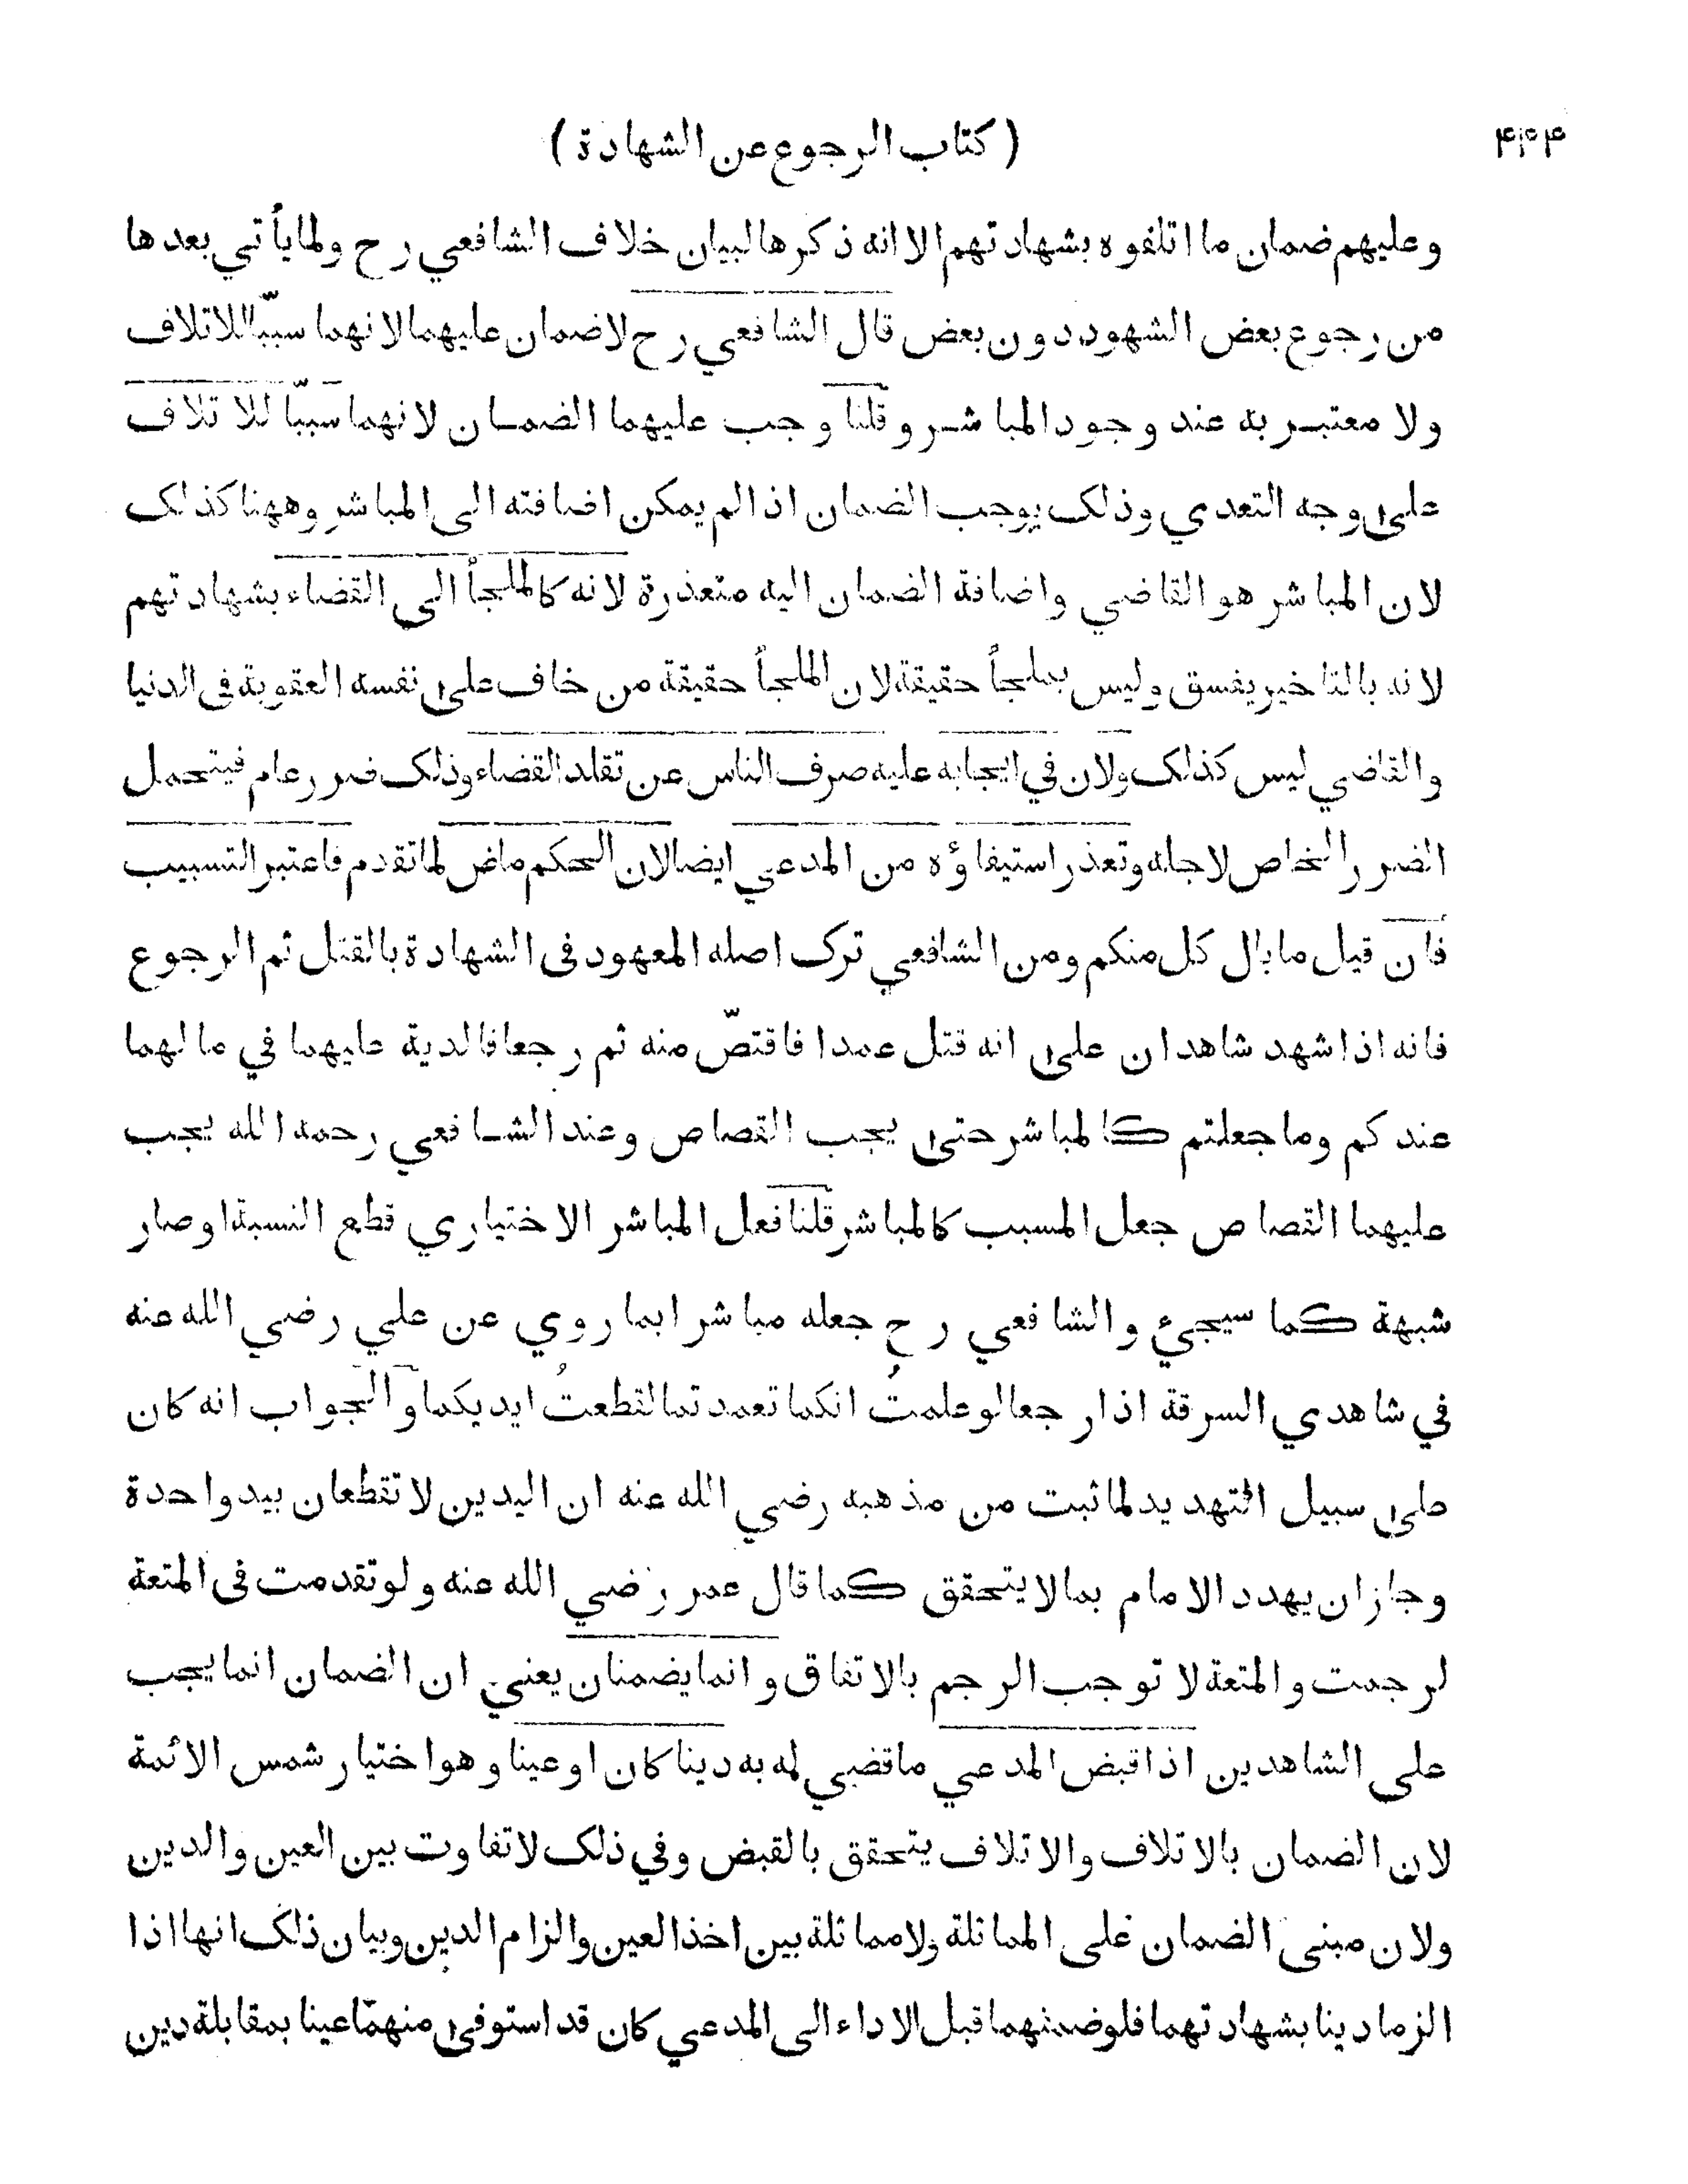 ( كتاب الرجوع عن الشهادة )
وعليهم ضمان ما اتلفوه بشهادتهم الا انه ذكرها لبيان خلاف الشافعي رح ولما يأتي بعدها
من رجوع بعض الشهود دون بعض قال الشافعي رح لا ضمان عليهما لانهما سبّبا للاتلاف
ولا معتبر به عند وجود المباشر وقلنا وجب عليهما الضمان لانهما سببّا للاتلاف
على وجه التعدي وذلك يوجب الضمان اذا لم يمكن اضافته الى المباشر وههنا كذلك
لان المباشر هو القاضي واضافة الضمان اليه متعذرة لانه كالملجأ الى القضاء بشهادتهم
لانه بالتاخير يفسق وليس بملجأ حقيقة لان الملجأ حقيقة من خاف على نفسه العقوبة في الدنيا
والقاضي ليس كذلك ولان في ايجابه عليه صرف الناس عن تقلد القضاء وذلك ضرر عام فيتحمل
الضرر الخاص لاجله وتعذر استيفاؤه من المدعي ايضا لان الحكم ماض لما تقدم فاعتبر التسبيب
فان قيل ما بال كل منكم ومن الشافعي ترك اصله المعهود في الشهادة بالقتل ثم الرجوع
فانه اذا شهد شاهدان على انه قتل عمدا فاقتصّ منه ثم رجعا فالدية عليهما في مالهما
عندكم وما جعلتم كالمباشر حتى يجب القصاص وعند الشافعي رحمه الله يجب
عليهما القصاص جعل المسبب كالمباشر قلنا فعل المباشر الاختياري قطع النسبة او صار
شبهة كما سيجيء والشافعي رح جعله مباشرا بما روي عن علي رضي الله عنه
في شاهدي السرقة اذا رجعا لو علمتُ انكما تعمدتما لقطعتُ ايديكما والجواب انه كان
على سبيل التهديد لما ثبت من مذهبه رضي الله عنه ان اليدين لا تقطعان بيد واحدة
وجاز ان يهدد الامام بما لا يتحقق كما قال عمر رضي الله عنه ولو تقدمت في المتعة
لرجمت والمتعة لا توجب الرجم بالاتفاق وانما يضمنان يعني ان الضمان انما يجب
على الشاهدين اذا قبض المدعي ما قضي له به دينا كان او عينا وهو اختيار شمس الائمة
لان الضمان بالاتلاف والاتلاف يتحقق بالقبض وفي ذلك لا تفاوت بين العين والدين
ولان مبنى الضمان على المماثلة ولا مماثلة بين اخذ العين والزام الدين وبيان ذلك انها اذا
الزما دينا بشهادتهما فلو ضمنهما قبل الاداء الى المدعي كان قد استوفى منهما عينا بمقابلة دين